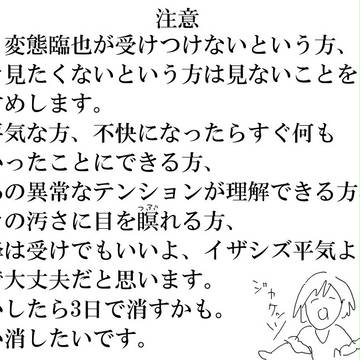 注意
変態臨也が受けつけないという方、
見たくないという方は見ないことを
めします。
気な方、不快になったらすぐ何も
ったことにできる方、
の異常なテンションが理解できる方
の汚さに目を瞑れる方、
つぶ
は受けでもいいよ、イザシズ平気よ
大丈夫だと思います。
したら3日で消すかも。
消したいです。
ジカケツ